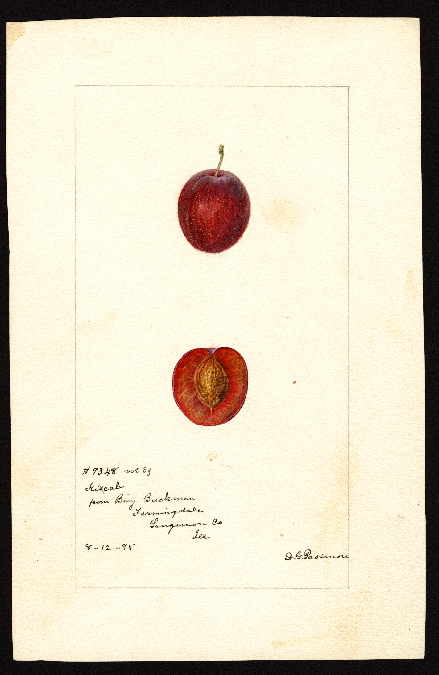 # 9348 vol 89
from Benj Buckman
Farmingdale
Sangamon Co
Ill
8-12-95
D.G. Passmore